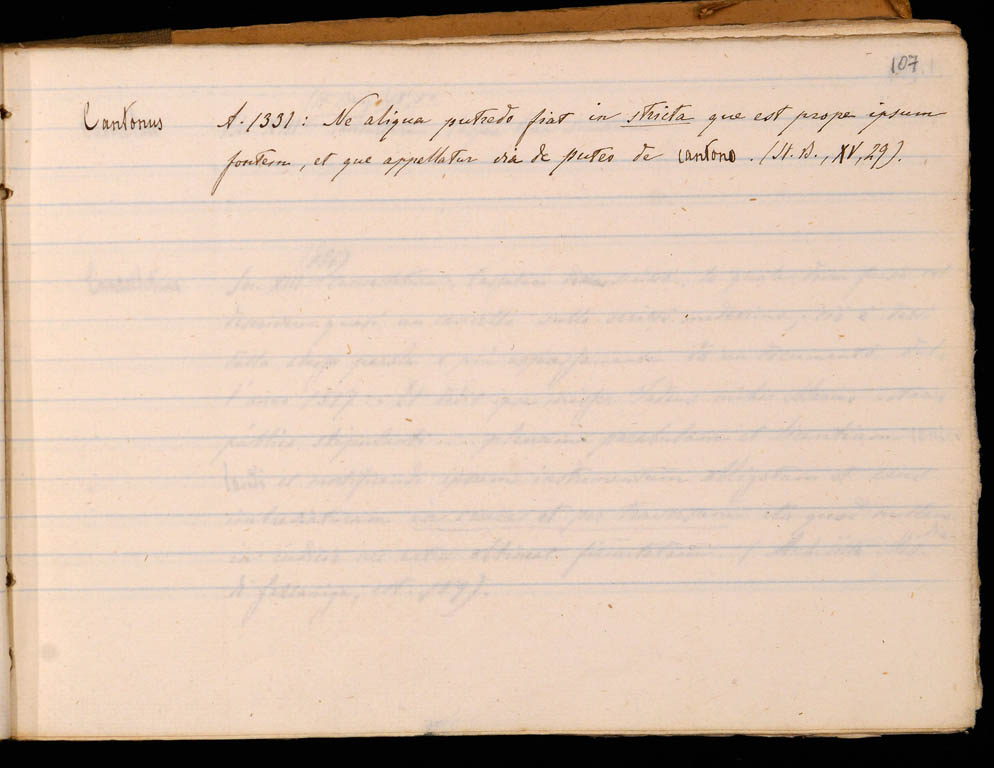 107
Cantonus A. 1331: Ne aliqua putredo fiat in stricta que est prope ipsum
fontem, et que appellatur via de puteo de cantono. (St. B., XV, 29).